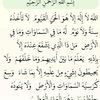 بِسْمِ اللَّهِ الرَّحْمَنِ الرَّحِيمِ
اللَّهُ لَا إِلَهَ إِلَّا هُوَ الْحَيُّ الْقَيُّومُ لَا تَأْخُذُهُ
سِنَةٌ وَلَا نَوْمٌ لَهُ مَا فِي السَّمَاوَاتِ وَمَا فِي
الْأَرْضِ مَنْ ذَا الَّذِي يَشْفَعُ عِنْدَهُ إِلَّا
بِإِذْنِهِ يَعْلَمُ مَا بَيْنَ أَيْدِيهِمْ وَمَا خَلْفَهُمْ وَلَا
يُحِيطُونَ بِشَيْءٍ مِنْ عِلْمِهِ إِلَّا بِمَا شَاءَ وَسِعَ
كُرْسِيُّهُ السَّمَاوَاتِ وَالْأَرْضَ وَلَا يَئُودُهُ
حِفْظُهُمَا وَهُوَ الْعَلِيُّ الْعَظِيمُ